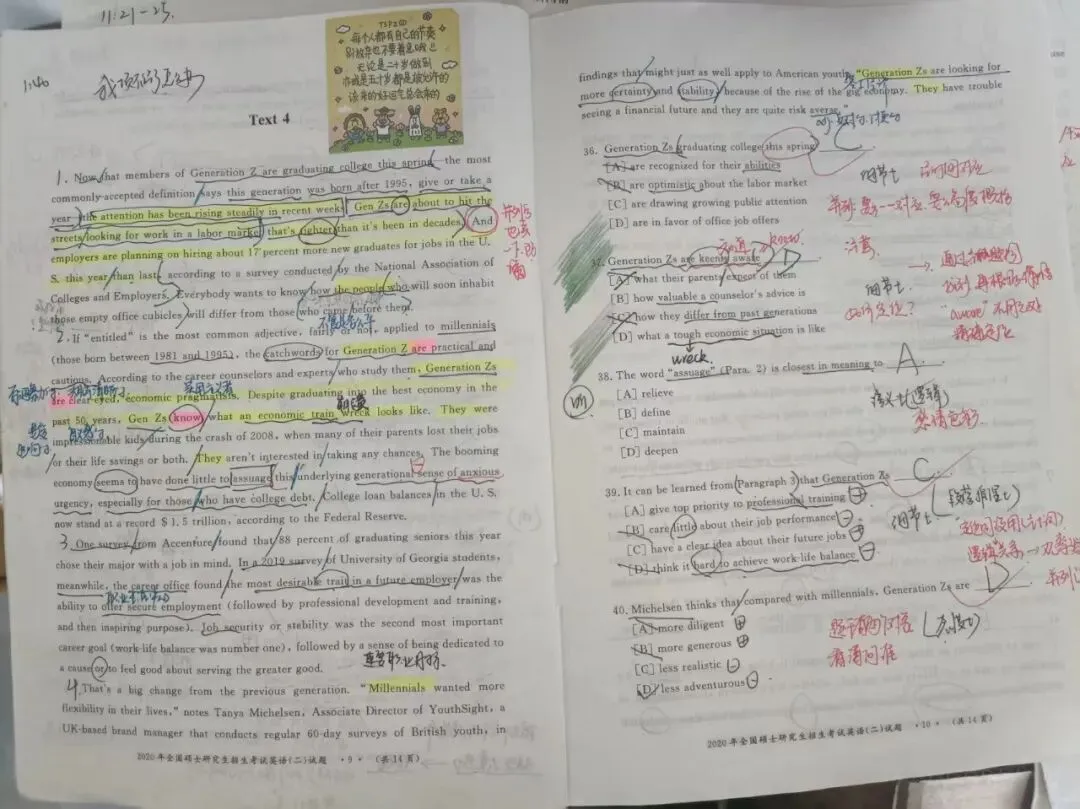 11.21-25.
1:40
TSP260
每个人都有自己的节奏
别放弃也不要着急哦
无论是二十岁做到
亦或是五十岁都是被允许的
该来的好运气总会来的
Text 4
1. Now that members of Generation Z are graduating college this spring—the most
commonly-accepted definition says this generation was born after 1995, give or take a
year—the attention has been rising steadily in recent weeks. Gen Zs are about to hit the
streets looking for work in a labor market that's tighter than it's been in decades. And
employers are planning on hiring about 17 percent more new graduates for jobs in the U.
S. this year than last, according to a survey conducted by the National Association of
Colleges and Employers. Everybody wants to know how the people who will soon inhabit
those empty office cubicles will differ from those who came before them.
2. If "entitled" is the most common adjective, fairly or not, applied to millennials
(those born between 1981 and 1995), the catchwords for Generation Z are practical and
cautious. According to the career counselors and experts who study them, Generation Zs
are clear-eyed, economic pragmatists. Despite graduating into the best economy in the
past 50 years, Gen Zs know what an economic train wreck looks like. They were
impressionable kids during the crash of 2008, when many of their parents lost their jobs
or their life savings or both. They aren't interested in taking any chances. The booming
economy seems to have done little to assuage this underlying generational sense of anxious
urgency, especially for those who have college debt. College loan balances in the U. S.
now stand at a record $ 1.5 trillion, according to the Federal Reserve.
3. One survey from Accenture found that 88 percent of graduating seniors this year
chose their major with a job in mind. In a 2019 survey of University of Georgia students,
meanwhile, the career office found the most desirable trait in a future employer was the
ability to offer secure employment (followed by professional development and training,
and then inspiring purpose). Job security or stability was the second most important
career goal (work-life balance was number one), followed by a sense of being dedicated to
a cause or to feel good about serving the greater good.
4. That's a big change from the previous generation. "Millennials wanted more
flexibility in their lives," notes Tanya Michelsen, Associate Director of YouthSight, a
UK-based brand manager that conducts regular 60-day surveys of British youth, in
2020年全国硕士研究生招生考试英语(二)试题 ·9· (共14页)
findings that might just as well apply to American youth. "Generation Zs are looking for
more certainty and stability, because of the rise of the gig economy. They have trouble
seeing a financial future and they are quite risk averse."
36. Generation Zs graduating college this spring
[A] are recognized for their abilities
[B] are optimistic about the labor market
[C] are drawing growing public attention
[D] are in favor of office job offers
C
细节士
know.
37. Generation Zs are keenly aware
D
[A] what their parents expect of them
[B] how valuable a counselor's advice is
[C] how they differ from past generations
[D] what a tough economic situation is like
注意
细节士.
如何定位?
"aware"
wreck.
38. The word "assuage" (Para. 2) is closest in meaning to
A
[A] relieve
[B] define
[C] maintain
[D] deepen
感情色彩
39. It can be learned from Paragraph 3 that Generation Zs
C
[A] give top priority to professional training
[B] care little about their job performance
[C] have a clear idea about their future jobs
[D] think it hard to achieve work-life balance
细节士
40. Michelsen thinks that compared with millennials, Generation Zs are
D
[A] more diligent
[B] more generous
[C] less realistic
[D] less adventurous
看清问谁
2020年全国硕士研究生招生考试英语(二)试题 ·10· (共14页)